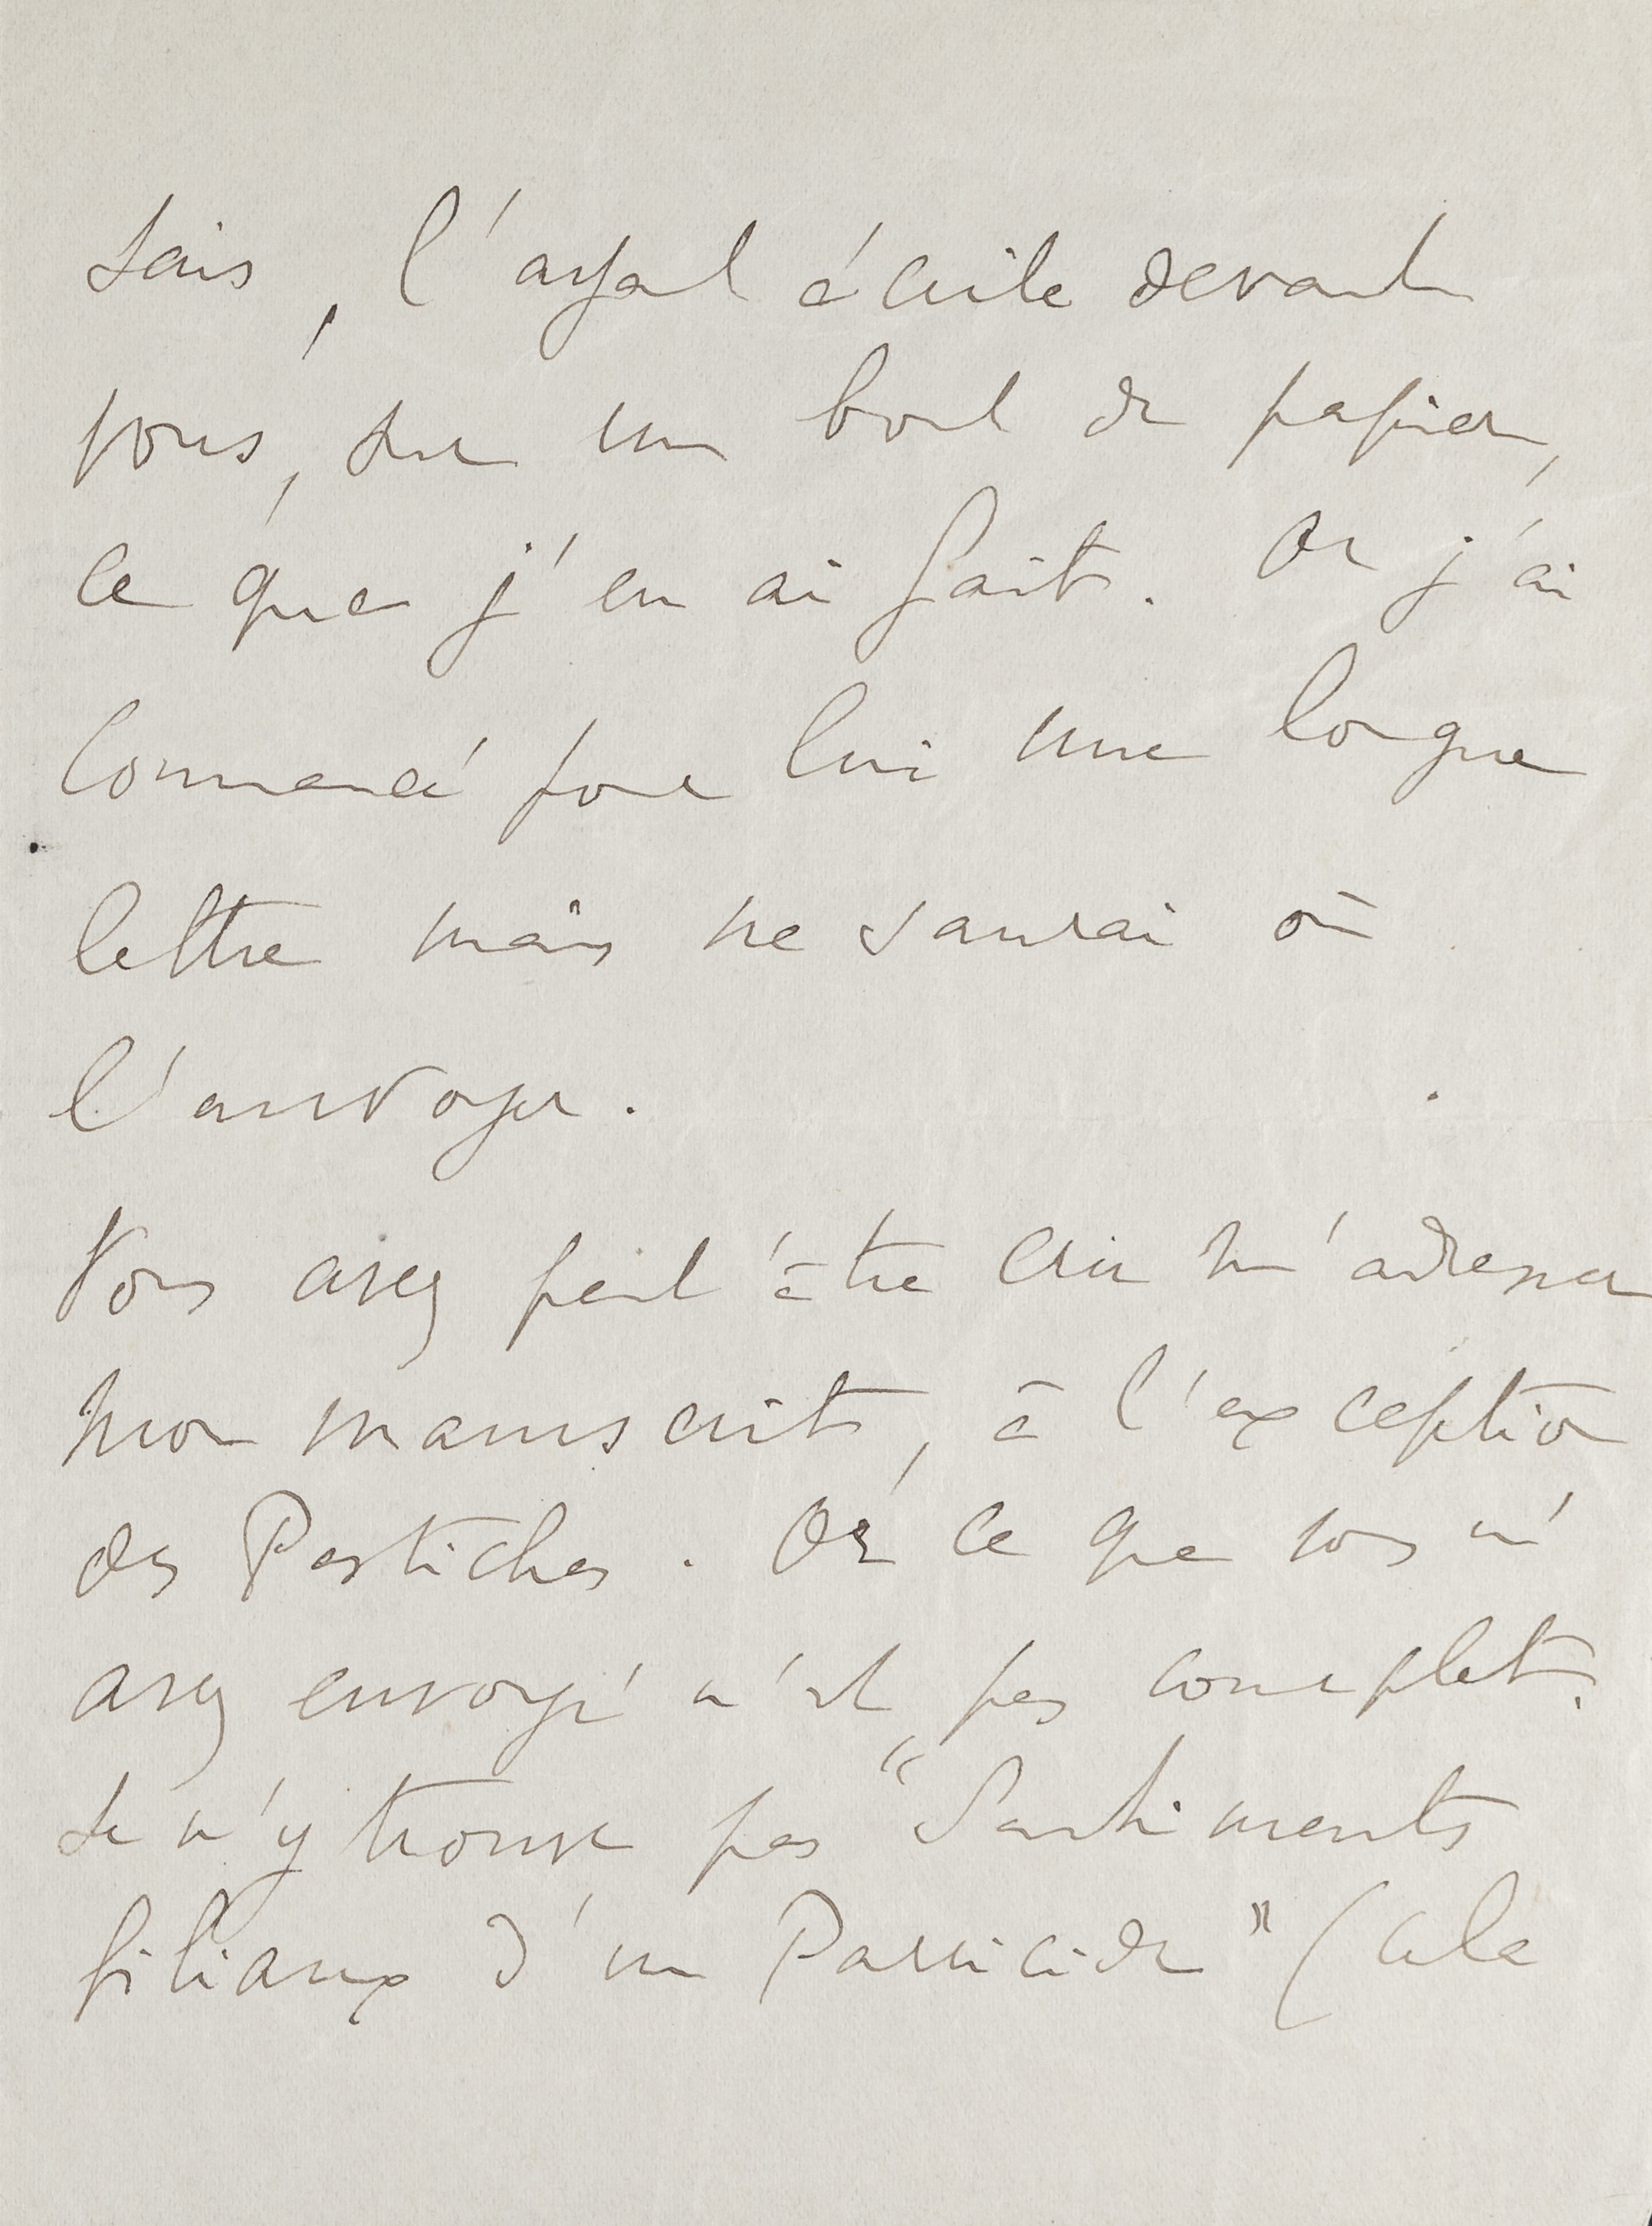 sais, l'ayant écrite devant
vous, sur un bout de papier,
ce que j'en ai fait. Or j'ai
commencé pour lui une longue
lettre mais ne saurai où
l'envoyer.
Vous avez peut'être cru m'adresser
mon manuscrit, à l'exception
des Pastiches. Or ce que vous m'
avez envoyé n'est pas complet.
Je n'y trouve pas "Sentiments
filiaux d'un Parricide" (cela